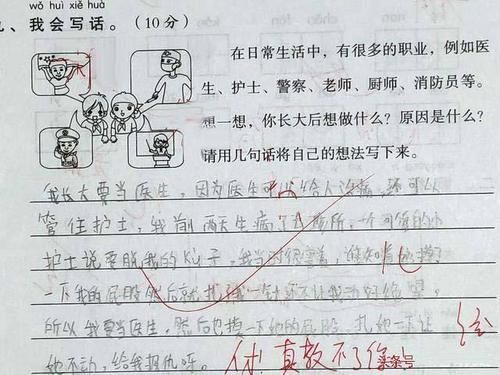 wǒ huì xiě huà
九、我会写话。（10分）
在日常生活中，有很多的职业，例如医
生、护士、警察、老师、厨师、消防员等。
想一想，你长大后想做什么？原因是什么？
请用几句话将自己的想法写下来。
我长大要当医生，因为医生可以给人治病，还可以
管住护士，我前两天生病了去诊所，一个可爱的小
护士说要脱我的裤子，我当时很害羞，谁知道她摸了
一下我的屁股然后就扎我一针还不让我动好绝望，
所以我要当医生，然后也摸一下她的屁股，扎她一下让
她不动，给我报仇呀。
休！真教不了你
条号